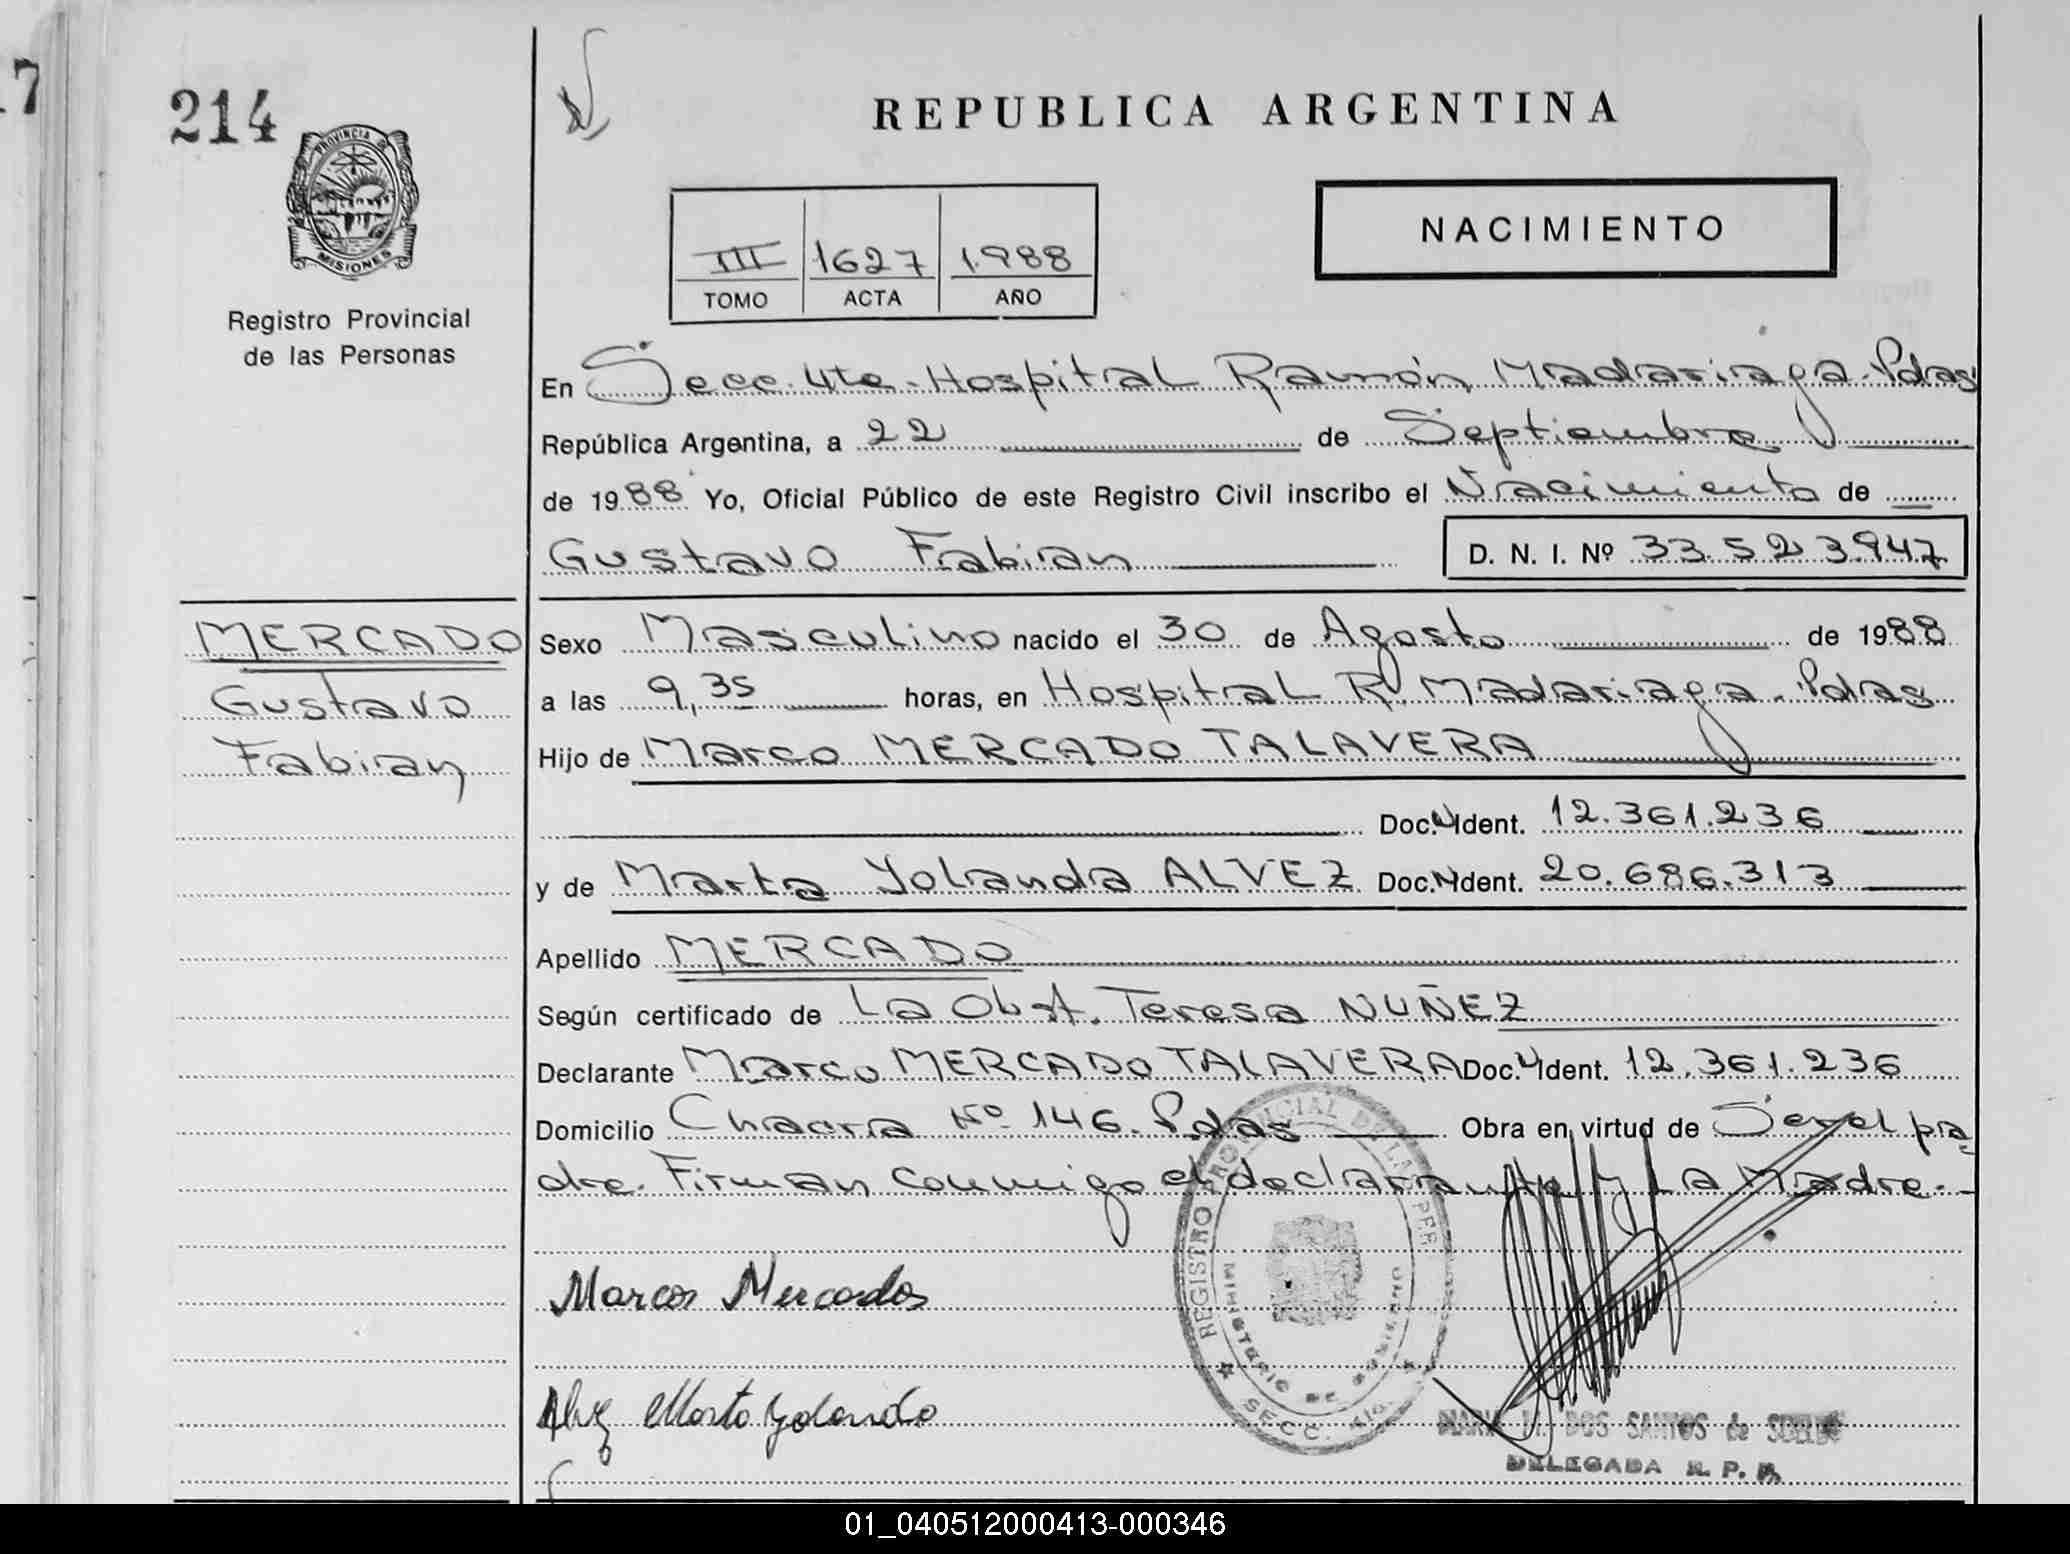 7
214
PROVINCIA DE
MISIONES
Registro Provincial
de las Personas
REPUBLICA ARGENTINA
III 1627 1988
TOMO ACTA AÑO
NACIMIENTO
En Secc. 4ta. Hospital Ramón Madariaga. Pdas
República Argentina, a 22 de Septiembre
de 1988 Yo, Oficial Público de este Registro Civil inscribo el Nacimiento de
Gustavo Fabian D. N. I. Nº 33.523.947
MERCADO
Gustavo
Fabian
Sexo Masculino nacido el 30 de Agosto de 1988
a las 9,35 horas, en Hospital R. Madariaga. Pdas
Hijo de Marco MERCADO TALAVERA
Doc. Ident. 12.361.236
y de Marta Yolanda ALVEZ Doc. Ident. 20.686.313
Apellido MERCADO
Según certificado de La Obst. Teresa NUÑEZ
Declarante Marco MERCADO TALAVERA Doc. Ident. 12.361.236
Domicilio Chacra Nº 146. Pdas Obra en virtud de Ser el pa
dre. Firman conmigo el declarante y La Madre.
Marcos Mercados
Alvez Marta Yolanda
REGISTRO PROVINCIAL DE LAS PER
MINISTERIO DE GOBIERNO
SECC. 4ta.
DOS SANTOS de
DELEGADA R. P. P.
01_040512000413-000346